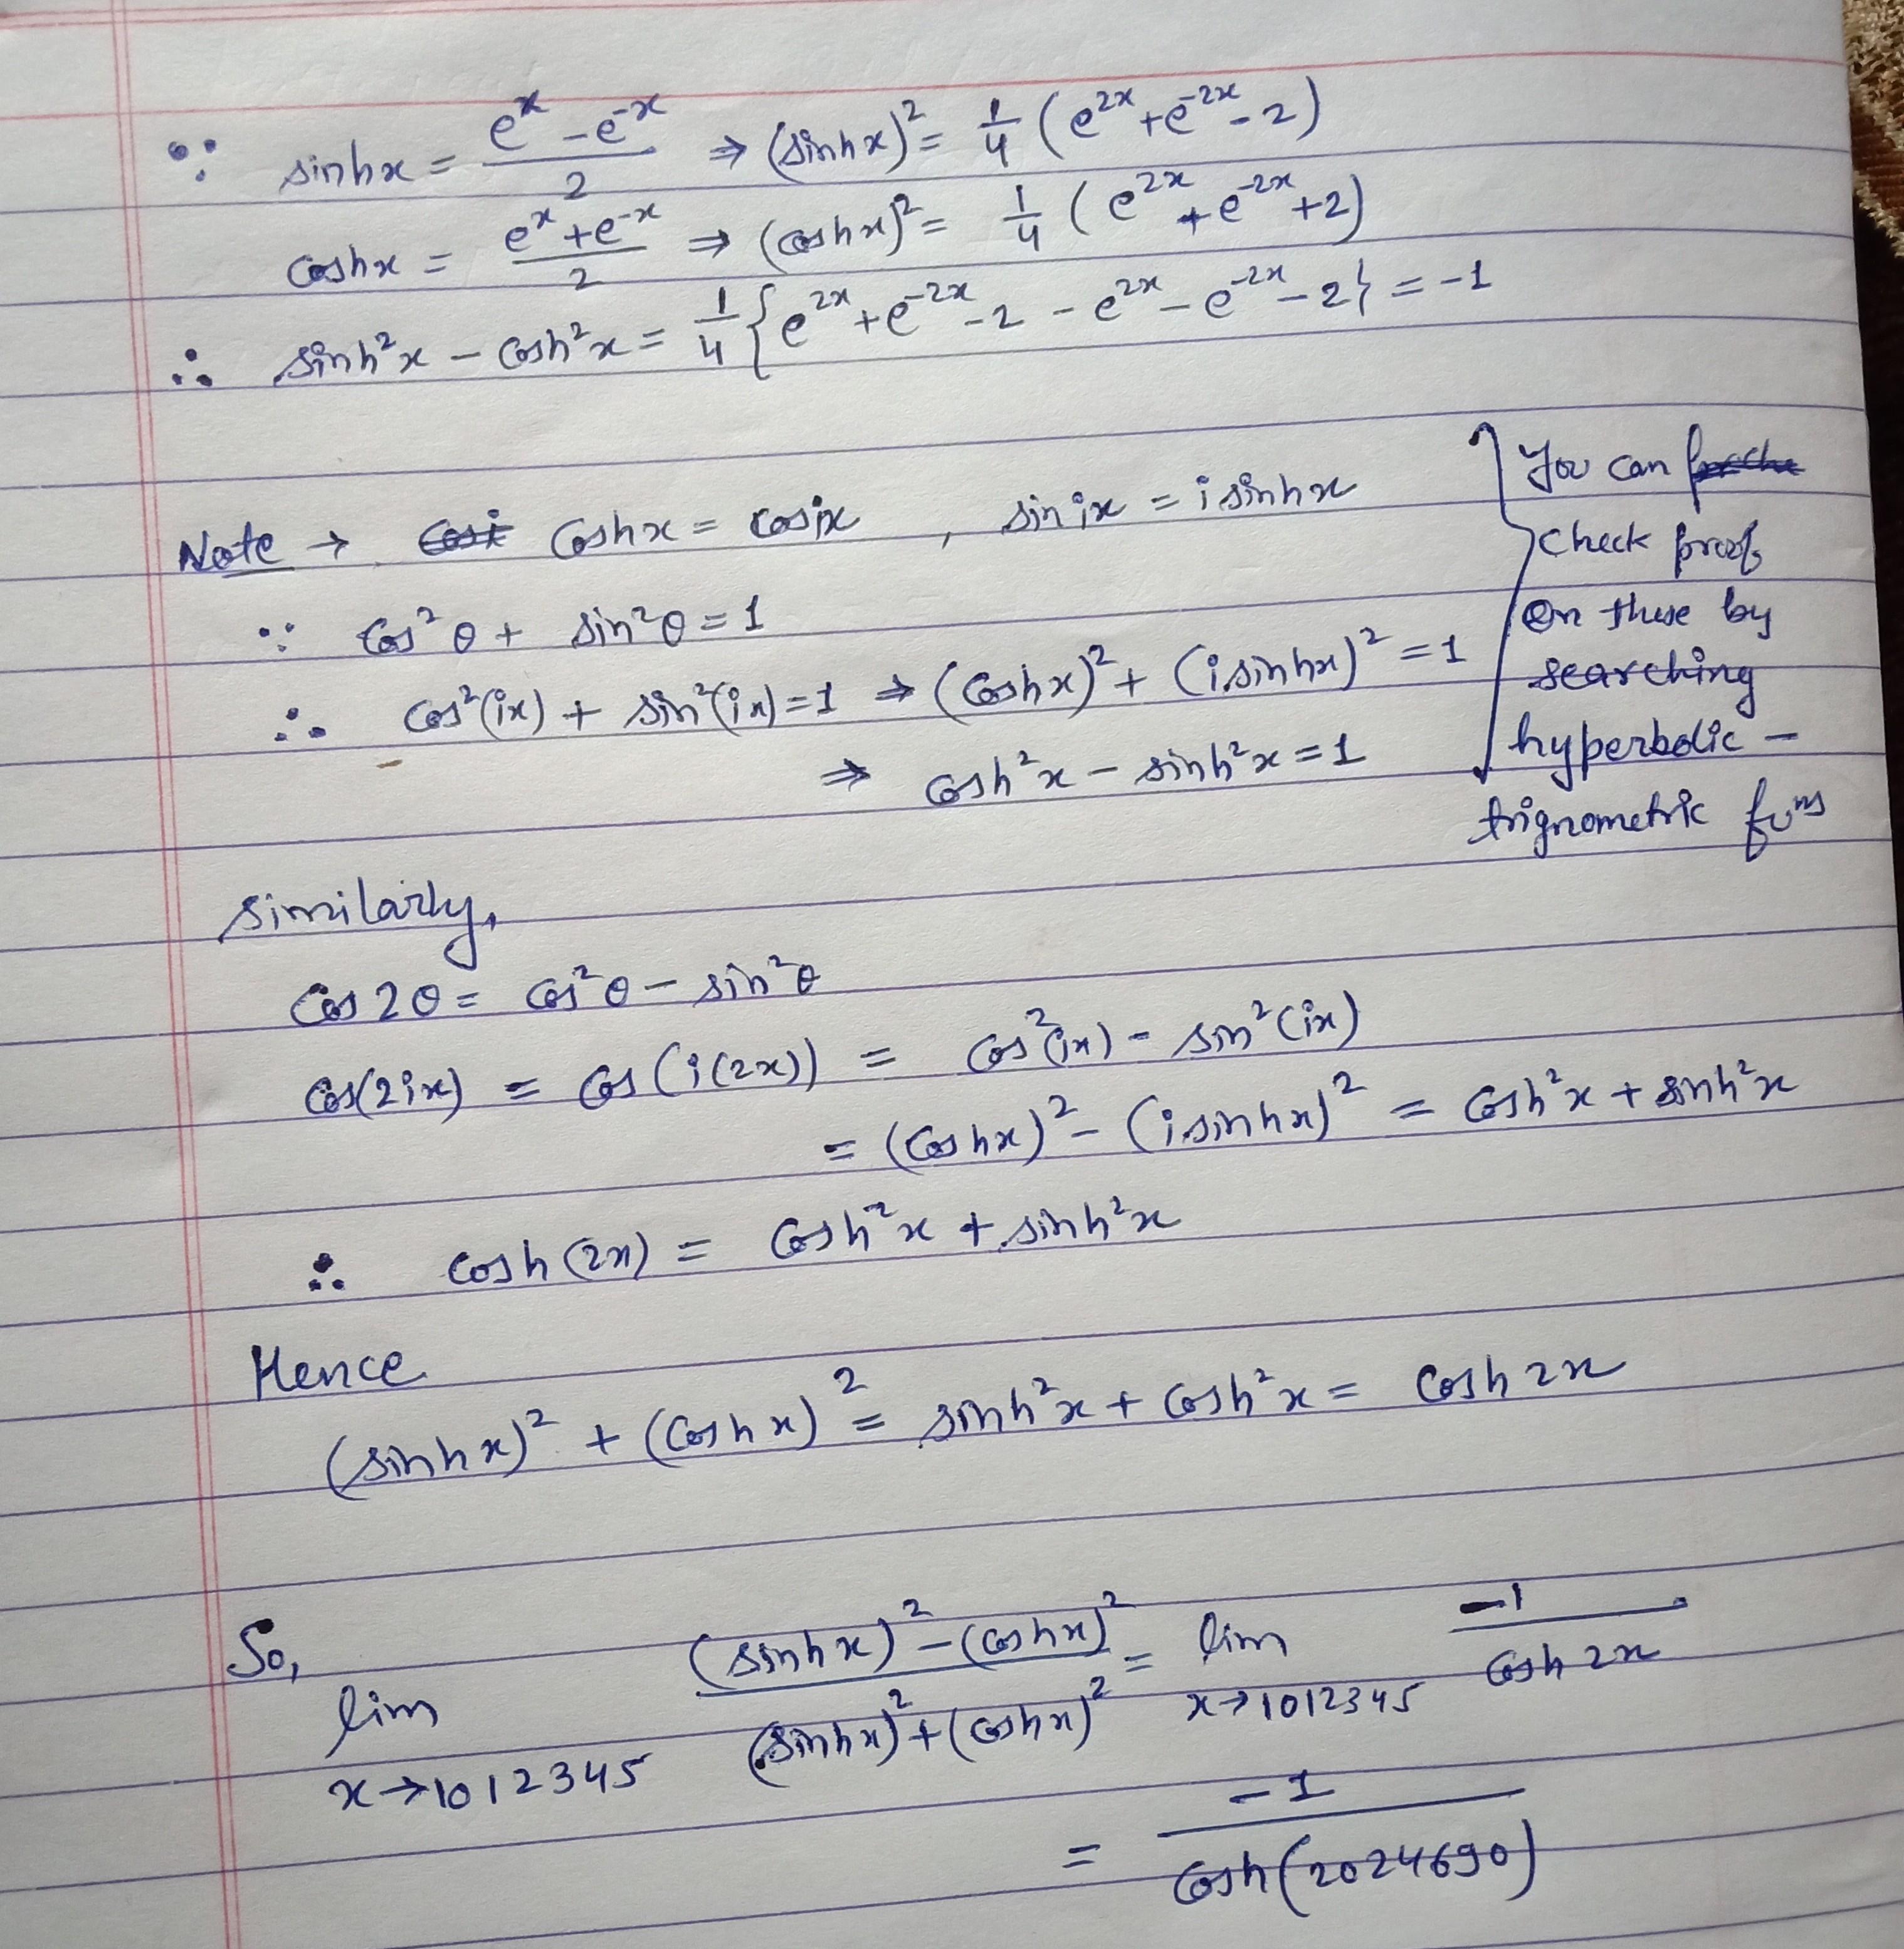 ∵ sinhx = (e^x - e^-x)/2 ⇒ (sinhx)² = 1/4 (e^2x + e^-2x - 2)
coshx = (e^x + e^-x)/2 ⇒ (coshx)² = 1/4 (e^2x + e^-2x + 2)
∴ sinh²x - cosh²x = 1/4 {e^2x + e^-2x - 2 - e^2x - e^-2x - 2} = -1
Note → coshx = cosix , sin ix = i sinhx
∵ cos²θ + sin²θ = 1
∴ cos²(ix) + sin²(ix) = 1 ⇒ (coshx)² + (i sinhx)² = 1
⇒ cosh²x - sinh²x = 1
You can
check proof
on these by
searching
hyperbolic -
trignometric fun^ns
similarly,
Cos 2θ = cos²θ - sin²θ
Cos(2ix) = Cos (i(2x)) = cos²(ix) - sin²(ix)
= (coshx)² - (i sinhx)² = cosh²x + sinh²x
∴ cosh (2x) = cosh²x + sinh²x
Hence
(sinhx)² + (coshx)² = sinh²x + cosh²x = cosh 2x
So,
lim x→1012345 ((sinhx)² - (coshx)²)/((sinhx)² + (coshx)²) = lim x→1012345 -1/cosh 2x
= -1/cosh(2024690)